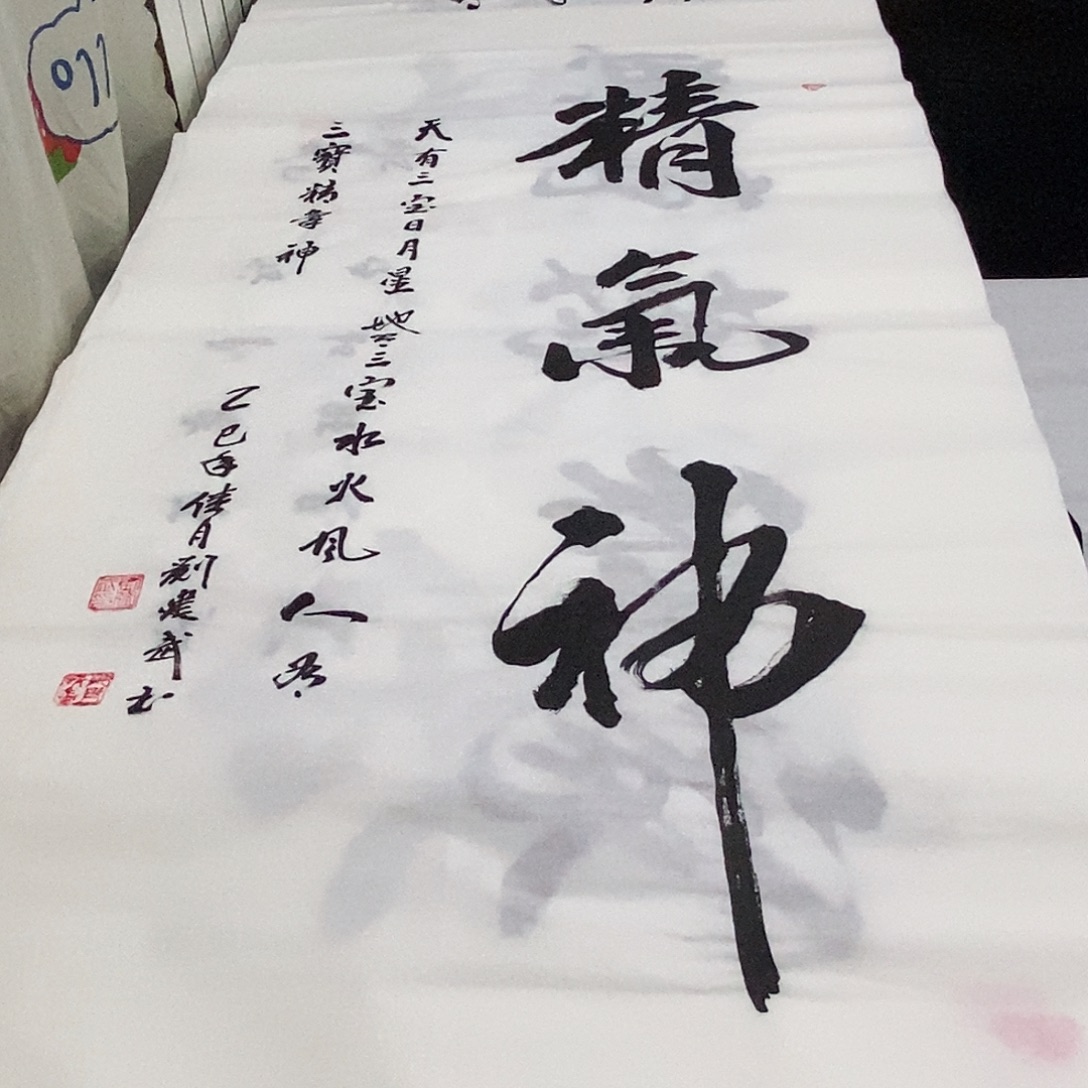 精氣神
天有三宝日月星地有三宝水火風人有
三寶精氣神
乙巳年佳月劉武书